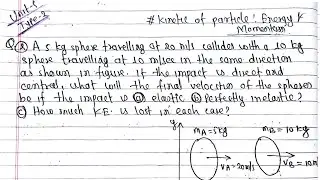 Unit-5
Type-2
# Kinetic of particle: Energy &
Momentum
Q. 2) A 5 kg sphere travelling at 20 m/s collides with a 10 kg
sphere travelling at 10 m/sec in the same direction
as shown in figure. If the impact is direct and
central, what will the final velocities of the spheres
be if the impact is (a) elastic (b) Perfectly inelastic?
(c) How much K.E. is lost in each case?
y
mA = 5kg
mB = 10kg
VA = 20m/s
VB = 10m/